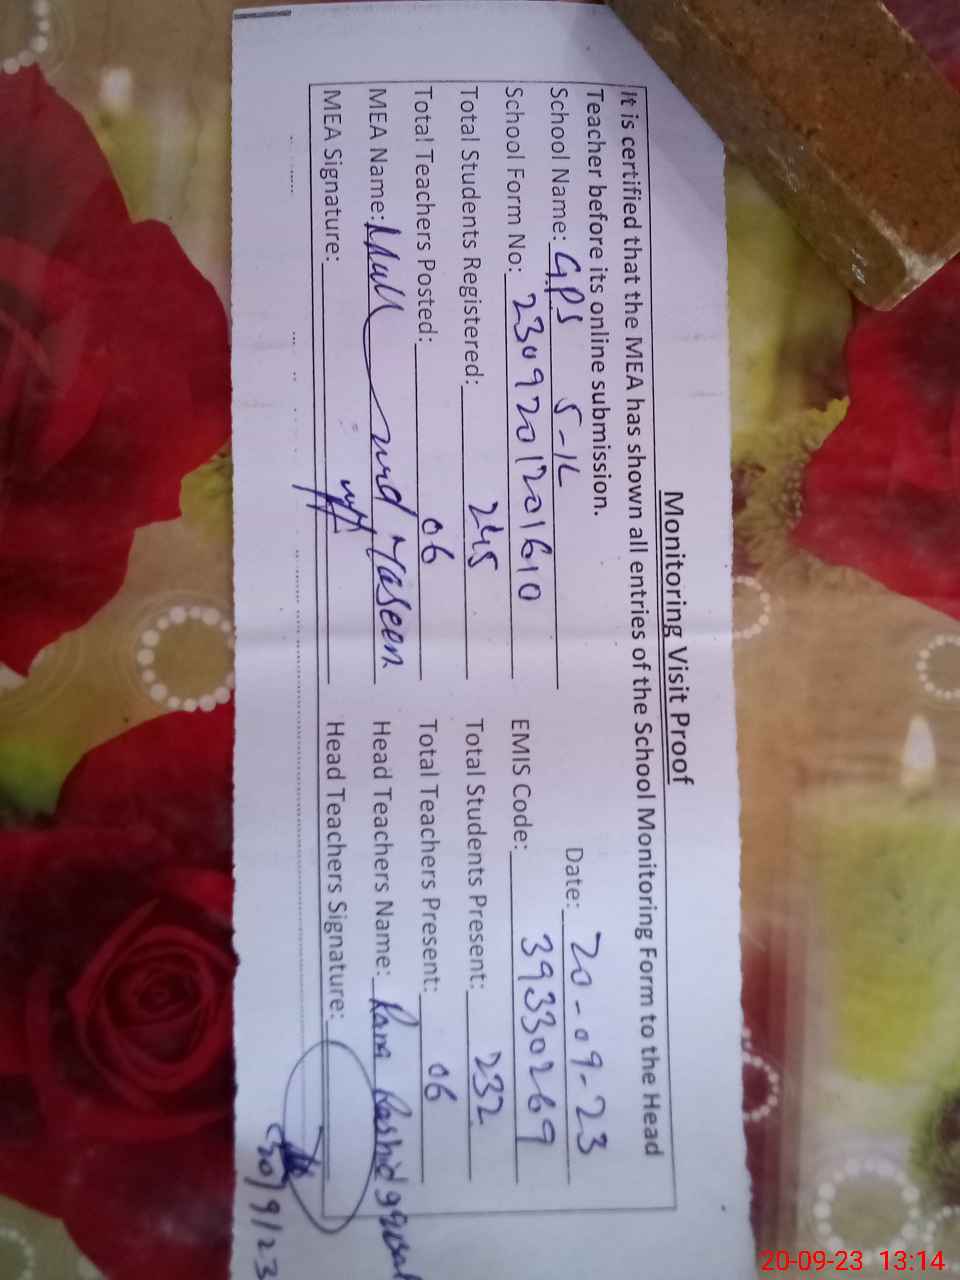 Monitoring Visit Proof
It is certified that the MEA has shown all entries of the School Monitoring Form to the Head
Teacher before its online submission.
Date: 20-09-23
School Name: GPS 5-1L
School Form No: 2309201201610 EMIS Code: 39330269
Total Students Registered: 245 Total Students Present: 232
Total Teachers Posted: 06 Total Teachers Present: 06
MEA Name: Yaseen Head Teachers Name: Rana Rashid
MEA Signature: Head Teachers Signature:
20/9/23
20-09-23 13:14